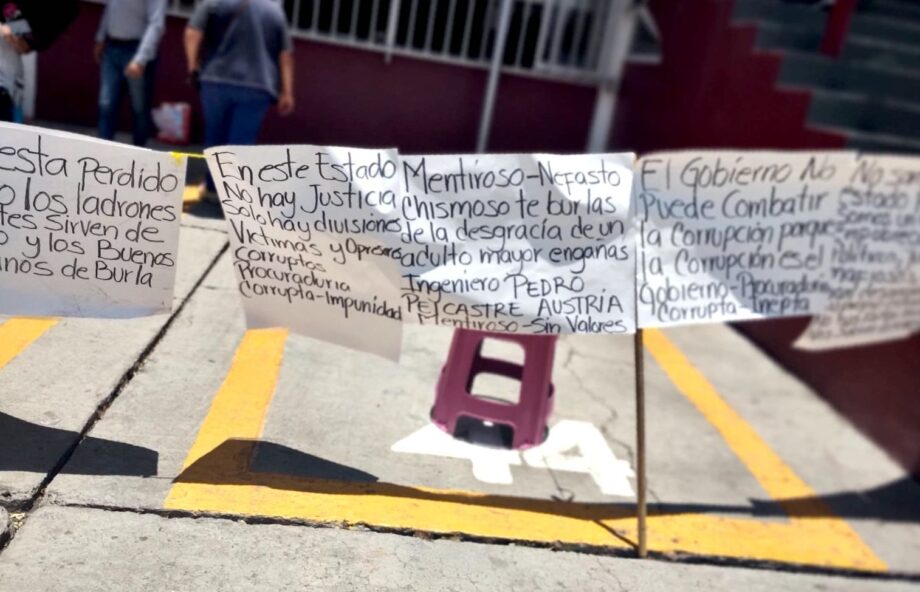 esta Perdido
o los ladrones
tes Sirven de
o y los Buenos
anos de Burla
En este Estado
No hay Justicia
Solo hay divisiones
Victimas y Opresores
Corruptos
Procuraduria
Corrupta-Impunidad
Mentiroso-Nefasto
Chismoso te burlas
de la desgracia de un
adulto mayor engañas
Ingeniero PEDRO
PELCASTRE AUSTRIA
Mentiroso-Sin Valores
El Gobierno No
Puede Combatir
la Corrupción porque
la Corrupción es el
Gobierno-Procuraduria
Corrupta-Inepta
No som
Estado
Somos un
44